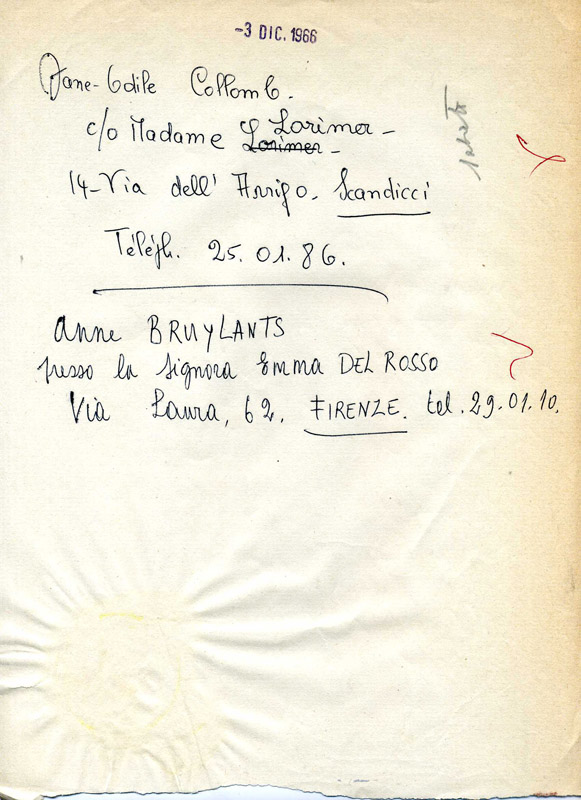 -3 DIC. 1966
Jane-Odile Collomb.
c/o Madame Lorimer -
Lorimer -
14-Via dell' Arrigo. Scandicci
Téléph. 25.01.86.
Anne BRUYLANTS
presso la signora Emma DEL ROSSO
Via Laura, 62. FIRENZE. tel. 29.01.10.